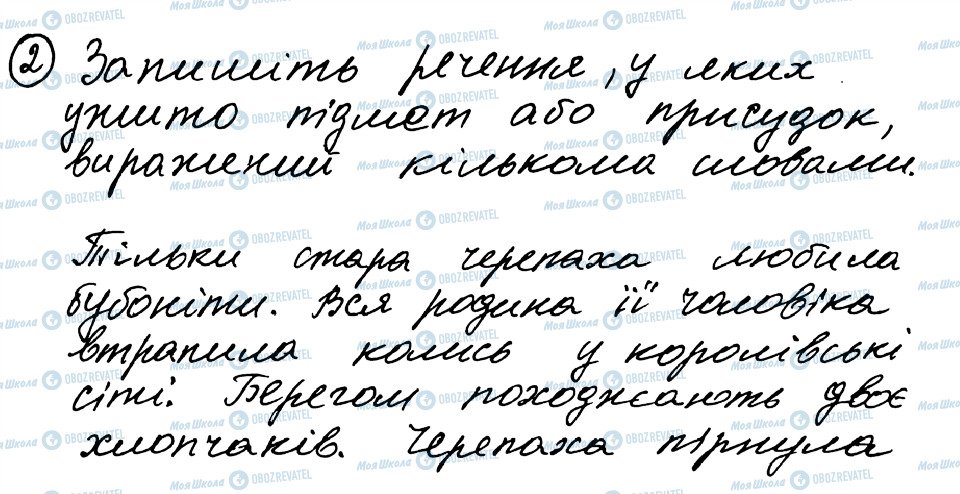 2 Запишіть речення, у яких
ужито підмет або присудок,
виражений кількома словами.
Тільки стара черепаха любила
бубоніти. Вся родина її чоловіка
втрапила колись у королівські
сіті. Берегом походжають двоє
хлопчаків. Черепаха пірнула